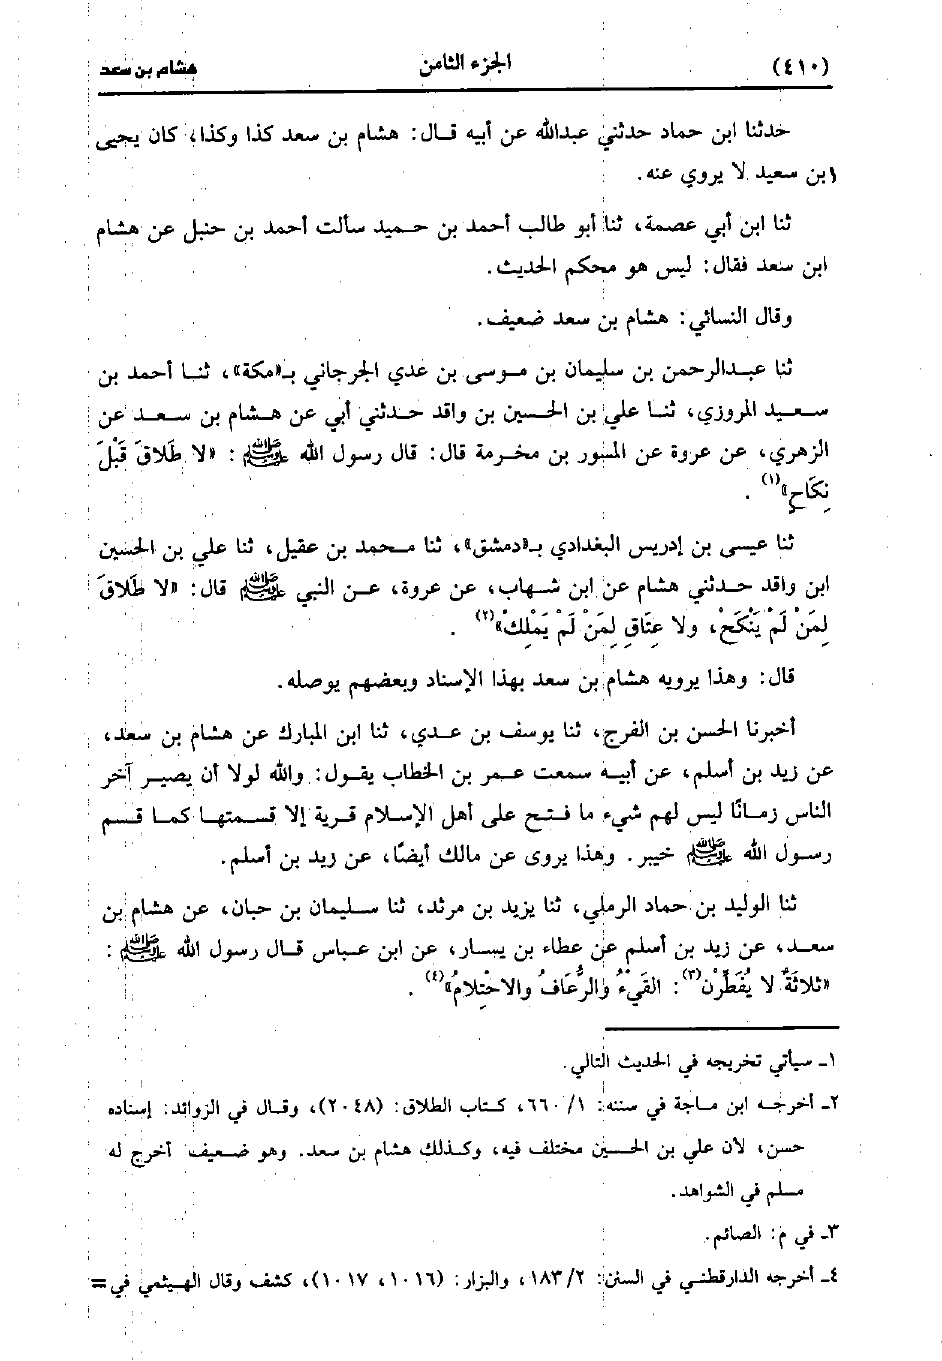 (٤١٠) الجزء الثامن هشام بن سعد
حدثنا ابن حماد حدثني عبدالله عن أبيه قال: هشام بن سعد كذا وكذا، كان يحيى
ابن سعيد لا يروي عنه.
ثنا ابن أبي عصمة، ثنا أبو طالب أحمد بن حميد سألت أحمد بن حنبل عن هشام
ابن سعد فقال: ليس هو محكم الحديث.
وقال النسائي: هشام بن سعد ضعيف.
ثنا عبدالرحمن بن سليمان بن موسى بن عدي الجرجاني بـ«مكة»، ثنا أحمد بن
سعيد المروزي، ثنا علي بن الحسين بن واقد حدثني أبي عن هشام بن سعد عن
الزهري، عن عروة عن المسور بن مخرمة قال: قال رسول الله ﷺ: «لا طَلَاقَ قَبْلَ
نِكَاحٍ»(١).
ثنا عيسى بن إدريس البغدادي بـ«دمشق»، ثنا محمد بن عقيل، ثنا علي بن الحسين
ابن واقد حدثني هشام عن ابن شهاب، عن عروة، عن النبي ﷺ قال: «لا طَلَاقَ
لِمَنْ لَمْ يَنْكَحْ، ولا عِتَاقِ لِمَنْ لَمْ يَمْلِكْ»(٢).
قال: وهذا يرويه هشام بن سعد بهذا الإسناد وبعضهم يوصله.
أخبرنا الحسن بن الفرج، ثنا يوسف بن عدي، ثنا ابن المبارك عن هشام بن سعد،
عن زيد بن أسلم، عن أبيه سمعت عمر بن الخطاب يقول: والله لولا أن يصير آخر
الناس زمانًا ليس لهم شيء ما فتح على أهل الإسلام قرية إلا قسمتها كما قسم
رسول الله ﷺ خيبر. وهذا يروى عن مالك أيضًا، عن زيد بن أسلم.
ثنا الوليد بن حماد الرملي، ثنا يزيد بن مرثد، ثنا سليمان بن حبان، عن هشام بن
سعد، عن زيد بن أسلم عن عطاء بن يسار، عن ابن عباس قال رسول الله ﷺ:
«ثلاثَةٌ لا يُفَطِّرْن(٣): القَيْءُ والرُّعَافُ والاحْتِلامُ»(٤).
١ـ سيأتي تخريجه في الحديث التالي.
٢ـ أخرجه ابن ماجة في سننه: ١/ ٦٦٠، كتاب الطلاق: (٢٠٤٨)، وقال في الزوائد: إسناده
حسن، لان علي بن الحسين مختلف فيه، وكذلك هشام بن سعد. وهو ضعيف أخرج له
مسلم في الشواهد.
٣ـ في م: الصائم.
٤ـ أخرجه الدارقطني في السنن: ٢/ ١٨٣، والبزار: (١٠١٦، ١٠١٧)، كشف وقال الهيثمي في=